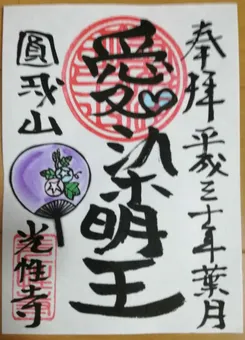 奉拝 平成三十年葉月
愛染明王
圓我山
光性寺